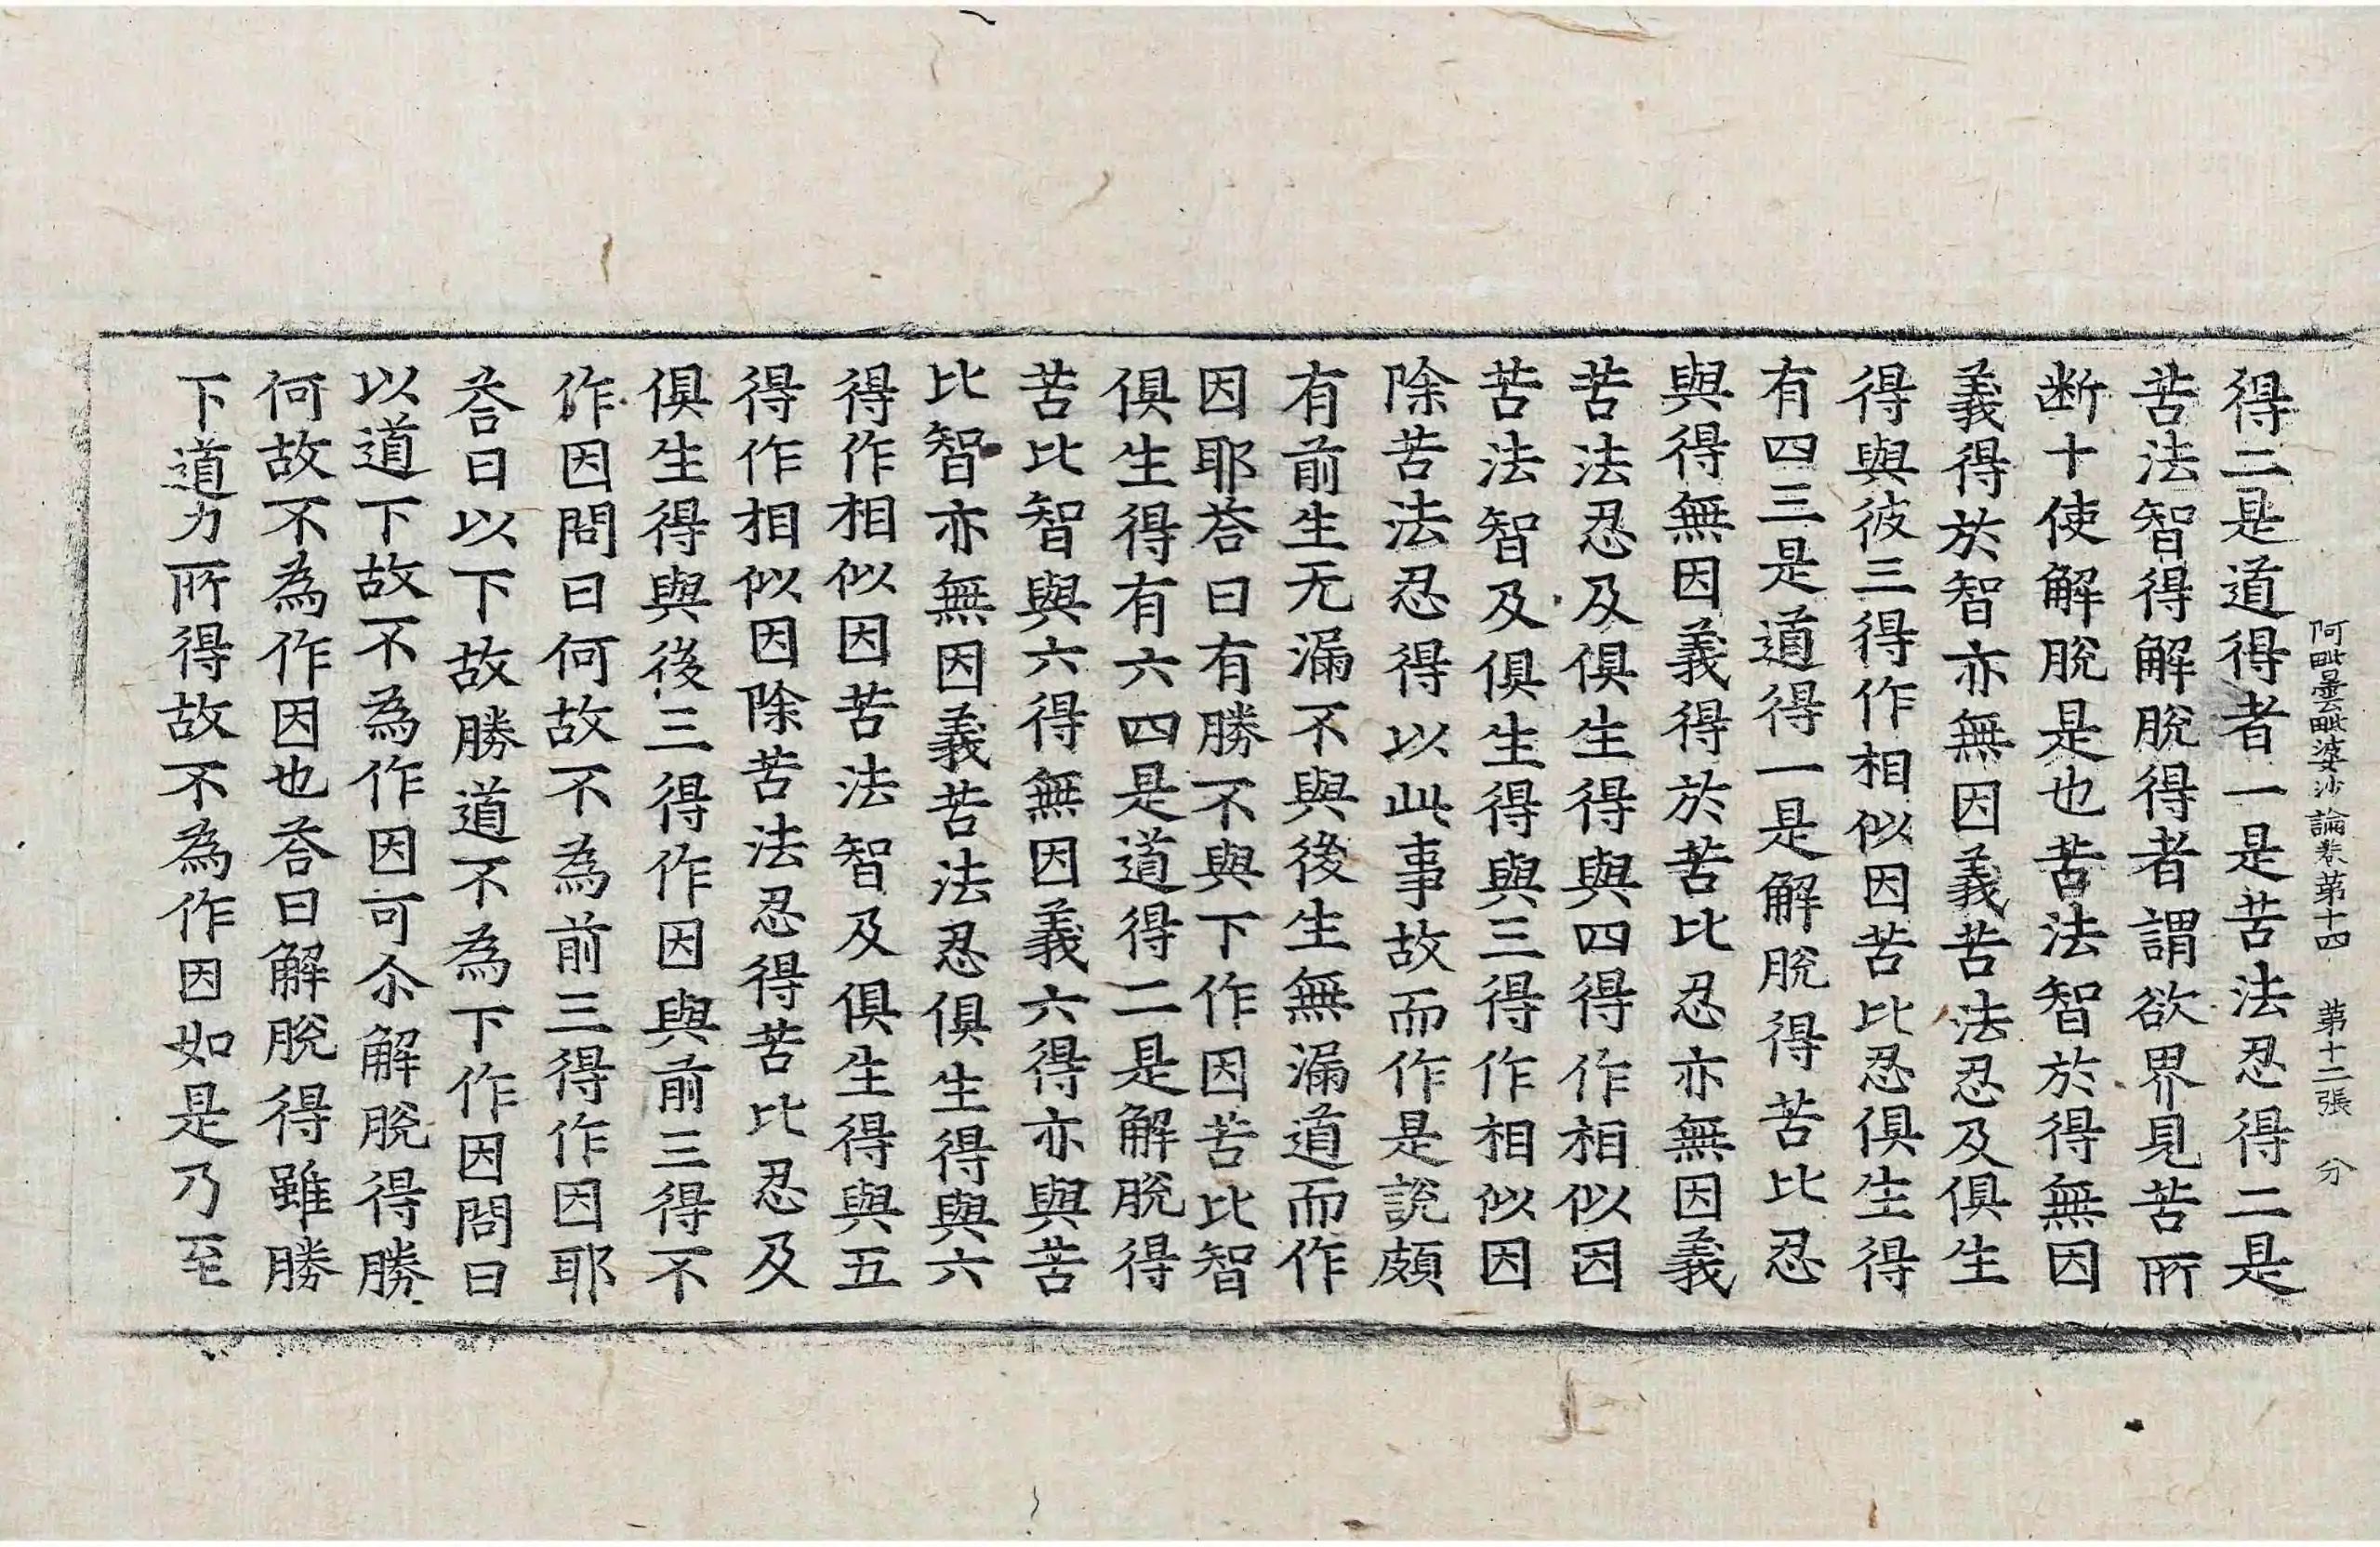 阿毗曇毗婆沙論卷第十四 第十二張 分
得二是道得者一是苦法忍得二是
苦法智得解脫得者謂欲界見苦所
断十使解脫是也苦法智於得無因
義得於智亦無因義苦法忍及俱生
得與彼三得作相似因苦比忍俱生得
有四三是道得一是解脫得苦比忍
與得無因義得於苦比忍亦無因義
苦法忍及俱生得與四得作相似因
苦法智及俱生得與三得作相似因
除苦法忍得以此事故而作是說頗
有前生无漏不與後生無漏道而作
因耶荅曰有勝不與下作因苦比智
俱生得有六四是道得二是解脫得
苦比智與六得無因義六得亦與苦
比智亦無因義苦法忍俱生得與六
得作相似因苦法智及俱生得與五
得作相似因除苦法忍得苦比忍及
俱生得與後三得作因與前三得不
作因問曰何故不為前三得作因耶
荅曰以下故勝道不為下作因問曰
以道下故不為作因可尒解脫得勝
何故不為作因也荅曰解脫得雖勝
下道力所得故不為作因如是乃至